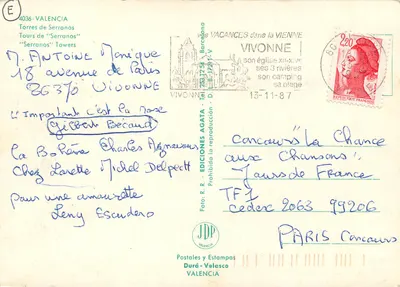 E
4036-VALENCIA
Torres de Serranos
Tours de "Serranos"
"Serranos" Towers
M. ANTOINE Monique
18 avenue de Paris
86370 VIVONNE
L'Important c'est la rose
Gilbert Bécaud
La Bohème Charles Aznavour
Chez Laurette Michel Delpech
Pour une amourette
Leny Escudero
Foto: R. R. - EDICIONES AGATA
Prohibida la reproducción
Barcelona
JDP
Postales y Estampas
Duró - Velasco
VALENCIA
VACANCES dans la VIENNE
VIVONNE
son église
ses 3 rivières
son camping
VIVONNE
13-11-87
2,20
Concours "La Chance
aux Chansons"
Jours de France
TF1
cedex 2063 99206
PARIS Concours